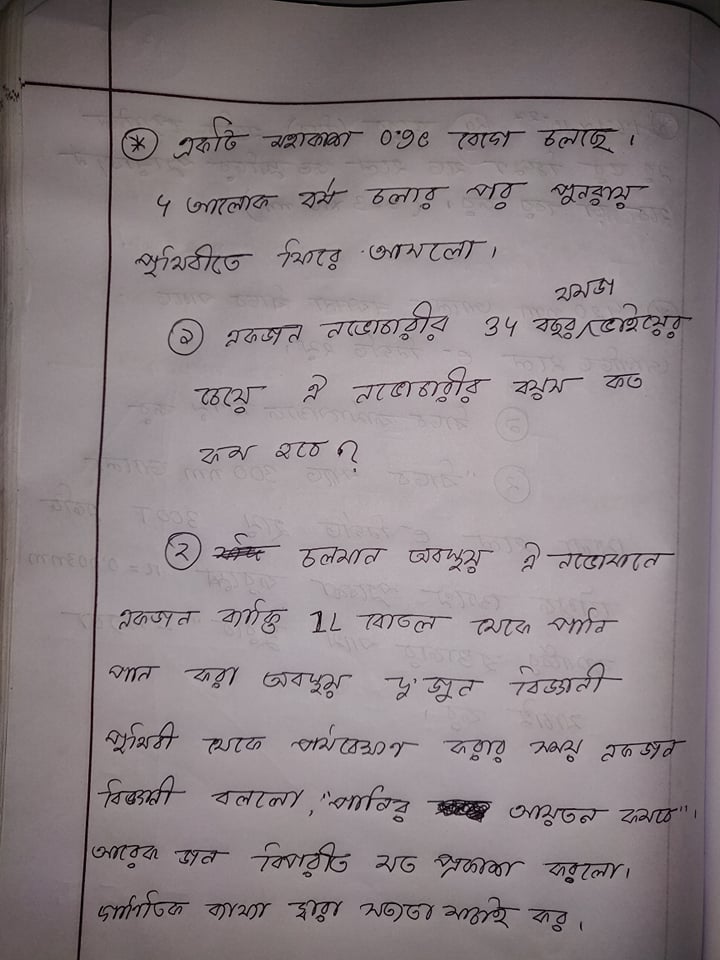 * একটি মহাকাশ 0.9c বেগে চলছে।
4 আলোক বর্ষ চলার পর পুনরায়
পৃথিবীতে ফিরে আসলো।
যমজ
১ একজন নভোচারীর 34 বছর/ভাইয়ের
চেয়ে ঐ নভোচারীর বয়স কত
কম হবে?
২ চলমান অবস্থায় ঐ নভোযানে
একজন ব্যক্তি 1L বোতল থেকে পানি
পান করা অবস্থায় দু'জন বিজ্ঞানী
পৃথিবী থেকে পর্যবেক্ষণ করার সময় একজন
বিজ্ঞানী বললো, "পানির আয়তন কমবে"।
আরেক জন বিপরীত মত প্রকাশ করলো।
গাণিতিক ব্যাখ্যা দ্বারা সত্যতা যাচাই কর।